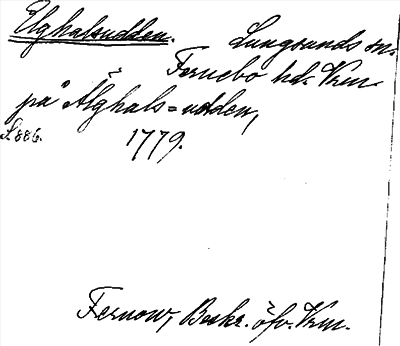 Elghalsudden. Lungsunds sn.
Fernebo hd. Vrm.
på Älghals=udden,
S. 886. 1779.
Fernow, Beskr. öfv. Vrm.